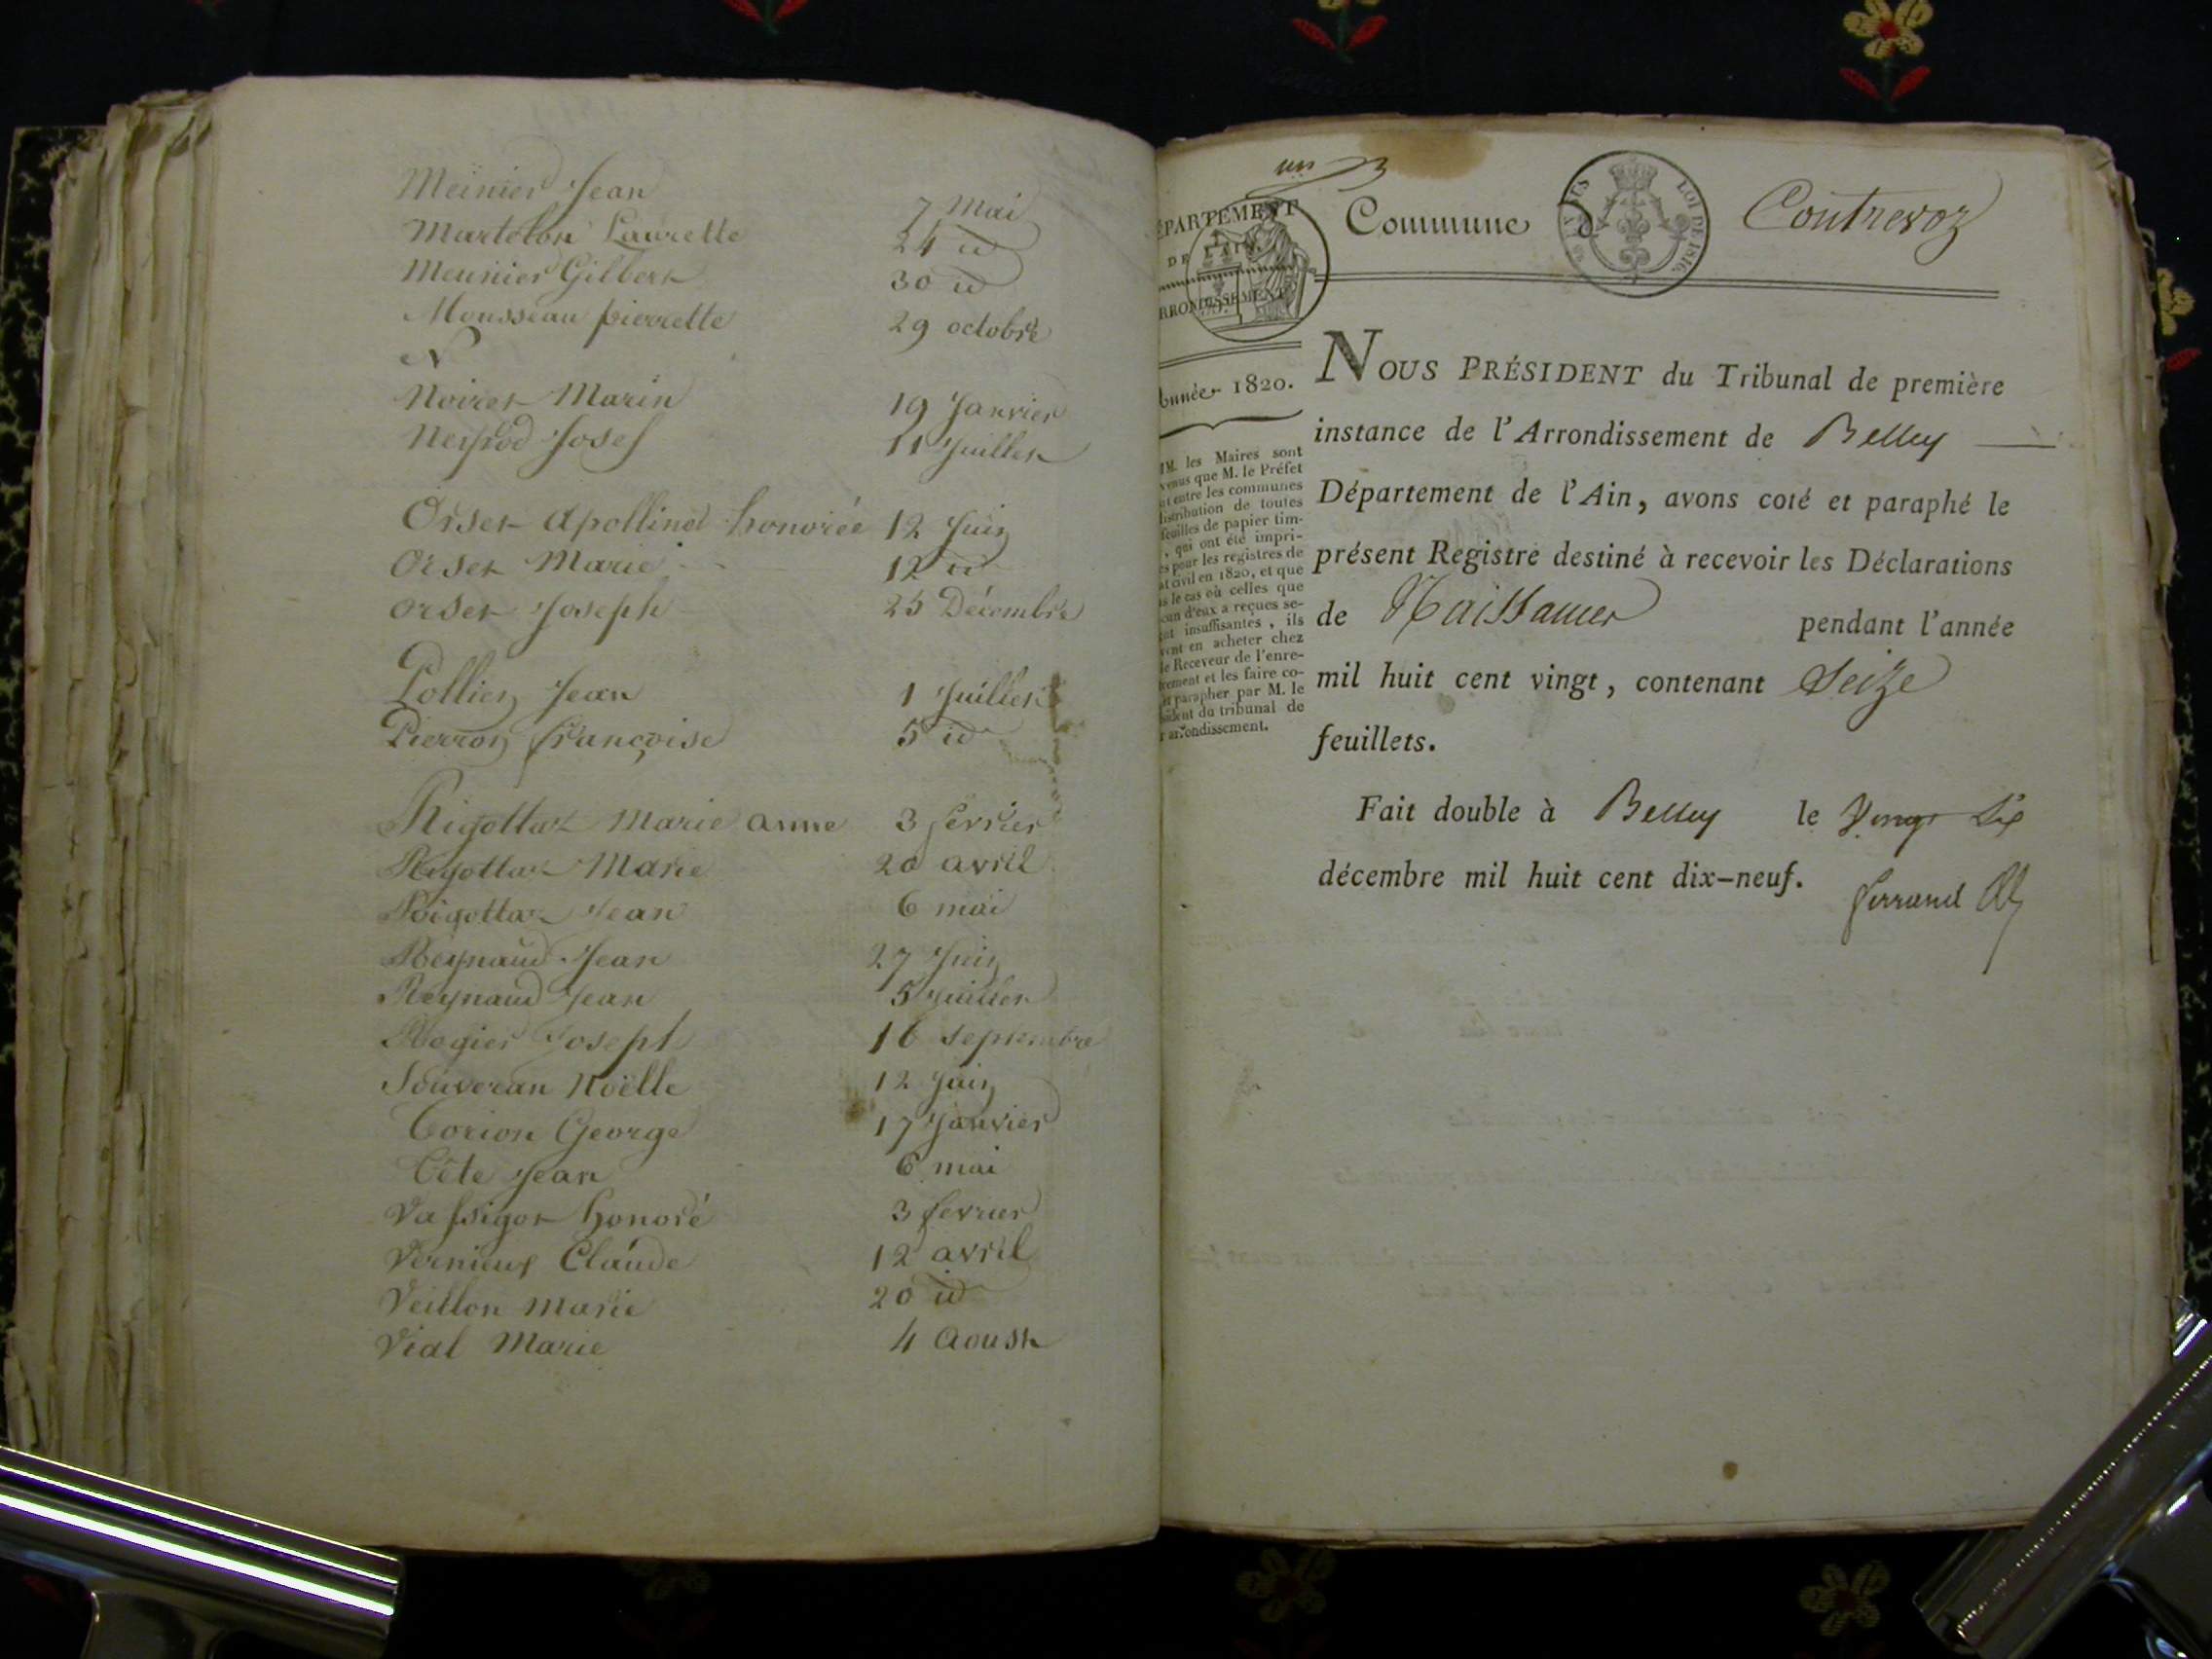 Meinier Jean 7 Mai
Martelon Laurette 24 id
Meunier Gilbert 30 id
Mousseau pierrette 29 octobre
N
Noiret Marin 19 Janvier
Neyrod Josef 11 Juillet
Orset Apolline honorée 12 Juin
Orset Marie 12 id
Orset Joseph 25 Décembre
Pollien Jean 1 Juillet
Pierron françoise 5 id
Rigottaz Marie anne 3 fevrier
Rigottaz Marie 20 avril
Roigottaz Jean 6 mai
Reynaud Jean 27 Juin
Reynaud Jean 5 Juillet
Rogier Joseph 16 Septembre
Souveran Noëlle 12 Juin
Torion George 17 Janvier
Tête Jean 6 mai
Vassigot honoré 3 fevrier
Vernieux Claude 12 avril
Veillon Marie 20 id
Vial Marie 4 Aoust
un
Commune de Contrevoz
ÉPARTEMENT
DE L'AIN.
RRONDISSEMENT
LOI DE 1816.
Année 1820.
MM. les Maires sont
venus que M. le Préfet
it entre les communes
distribution de toutes
feuilles de papier tim-
, qui ont été impri-
es pour les registres de
at civil en 1820, et que
s le cas où celles que
cun d'eux a reçues se-
nt insuffisantes, ils
vent en acheter chez
le Receveur de l'enre-
trement et les faire co-
et parapher par M. le
sident du tribunal de
r arrondissement.
NOUS PRÉSIDENT du Tribunal de première
instance de l'Arrondissement de Belley
Département de l'Ain, avons coté et paraphé le
présent Registre destiné à recevoir les Déclarations
de Naissances pendant l'année
mil huit cent vingt, contenant Seize
feuillets.
Fait double à Belley le Vingt Six
décembre mil huit cent dix-neuf.
ferrand